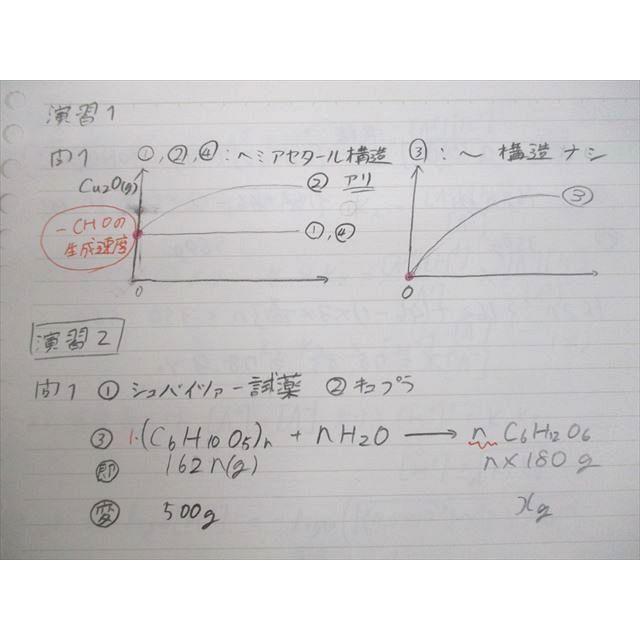 演習1
問1 ①,②,④:ヘミアセタール構造 ③:〜構造ナシ
Cu2O(g)
② アリ
①,④
③
-CHOの
生成速度
0
0
演習2
問1 ① シュバイツァー試薬 ② キュプラ
③ 1・(C6H10O5)n + nH2O → n C6H12O6
即 162n(g) n×180 g
変 500g xg